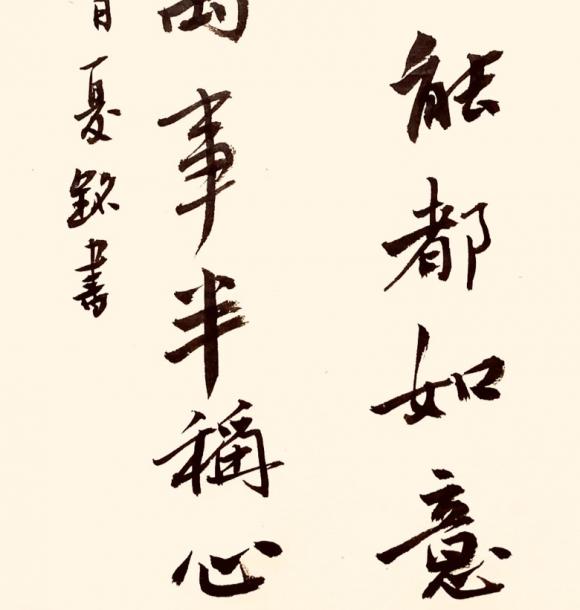 能都如意
事半稱心
夏銘書